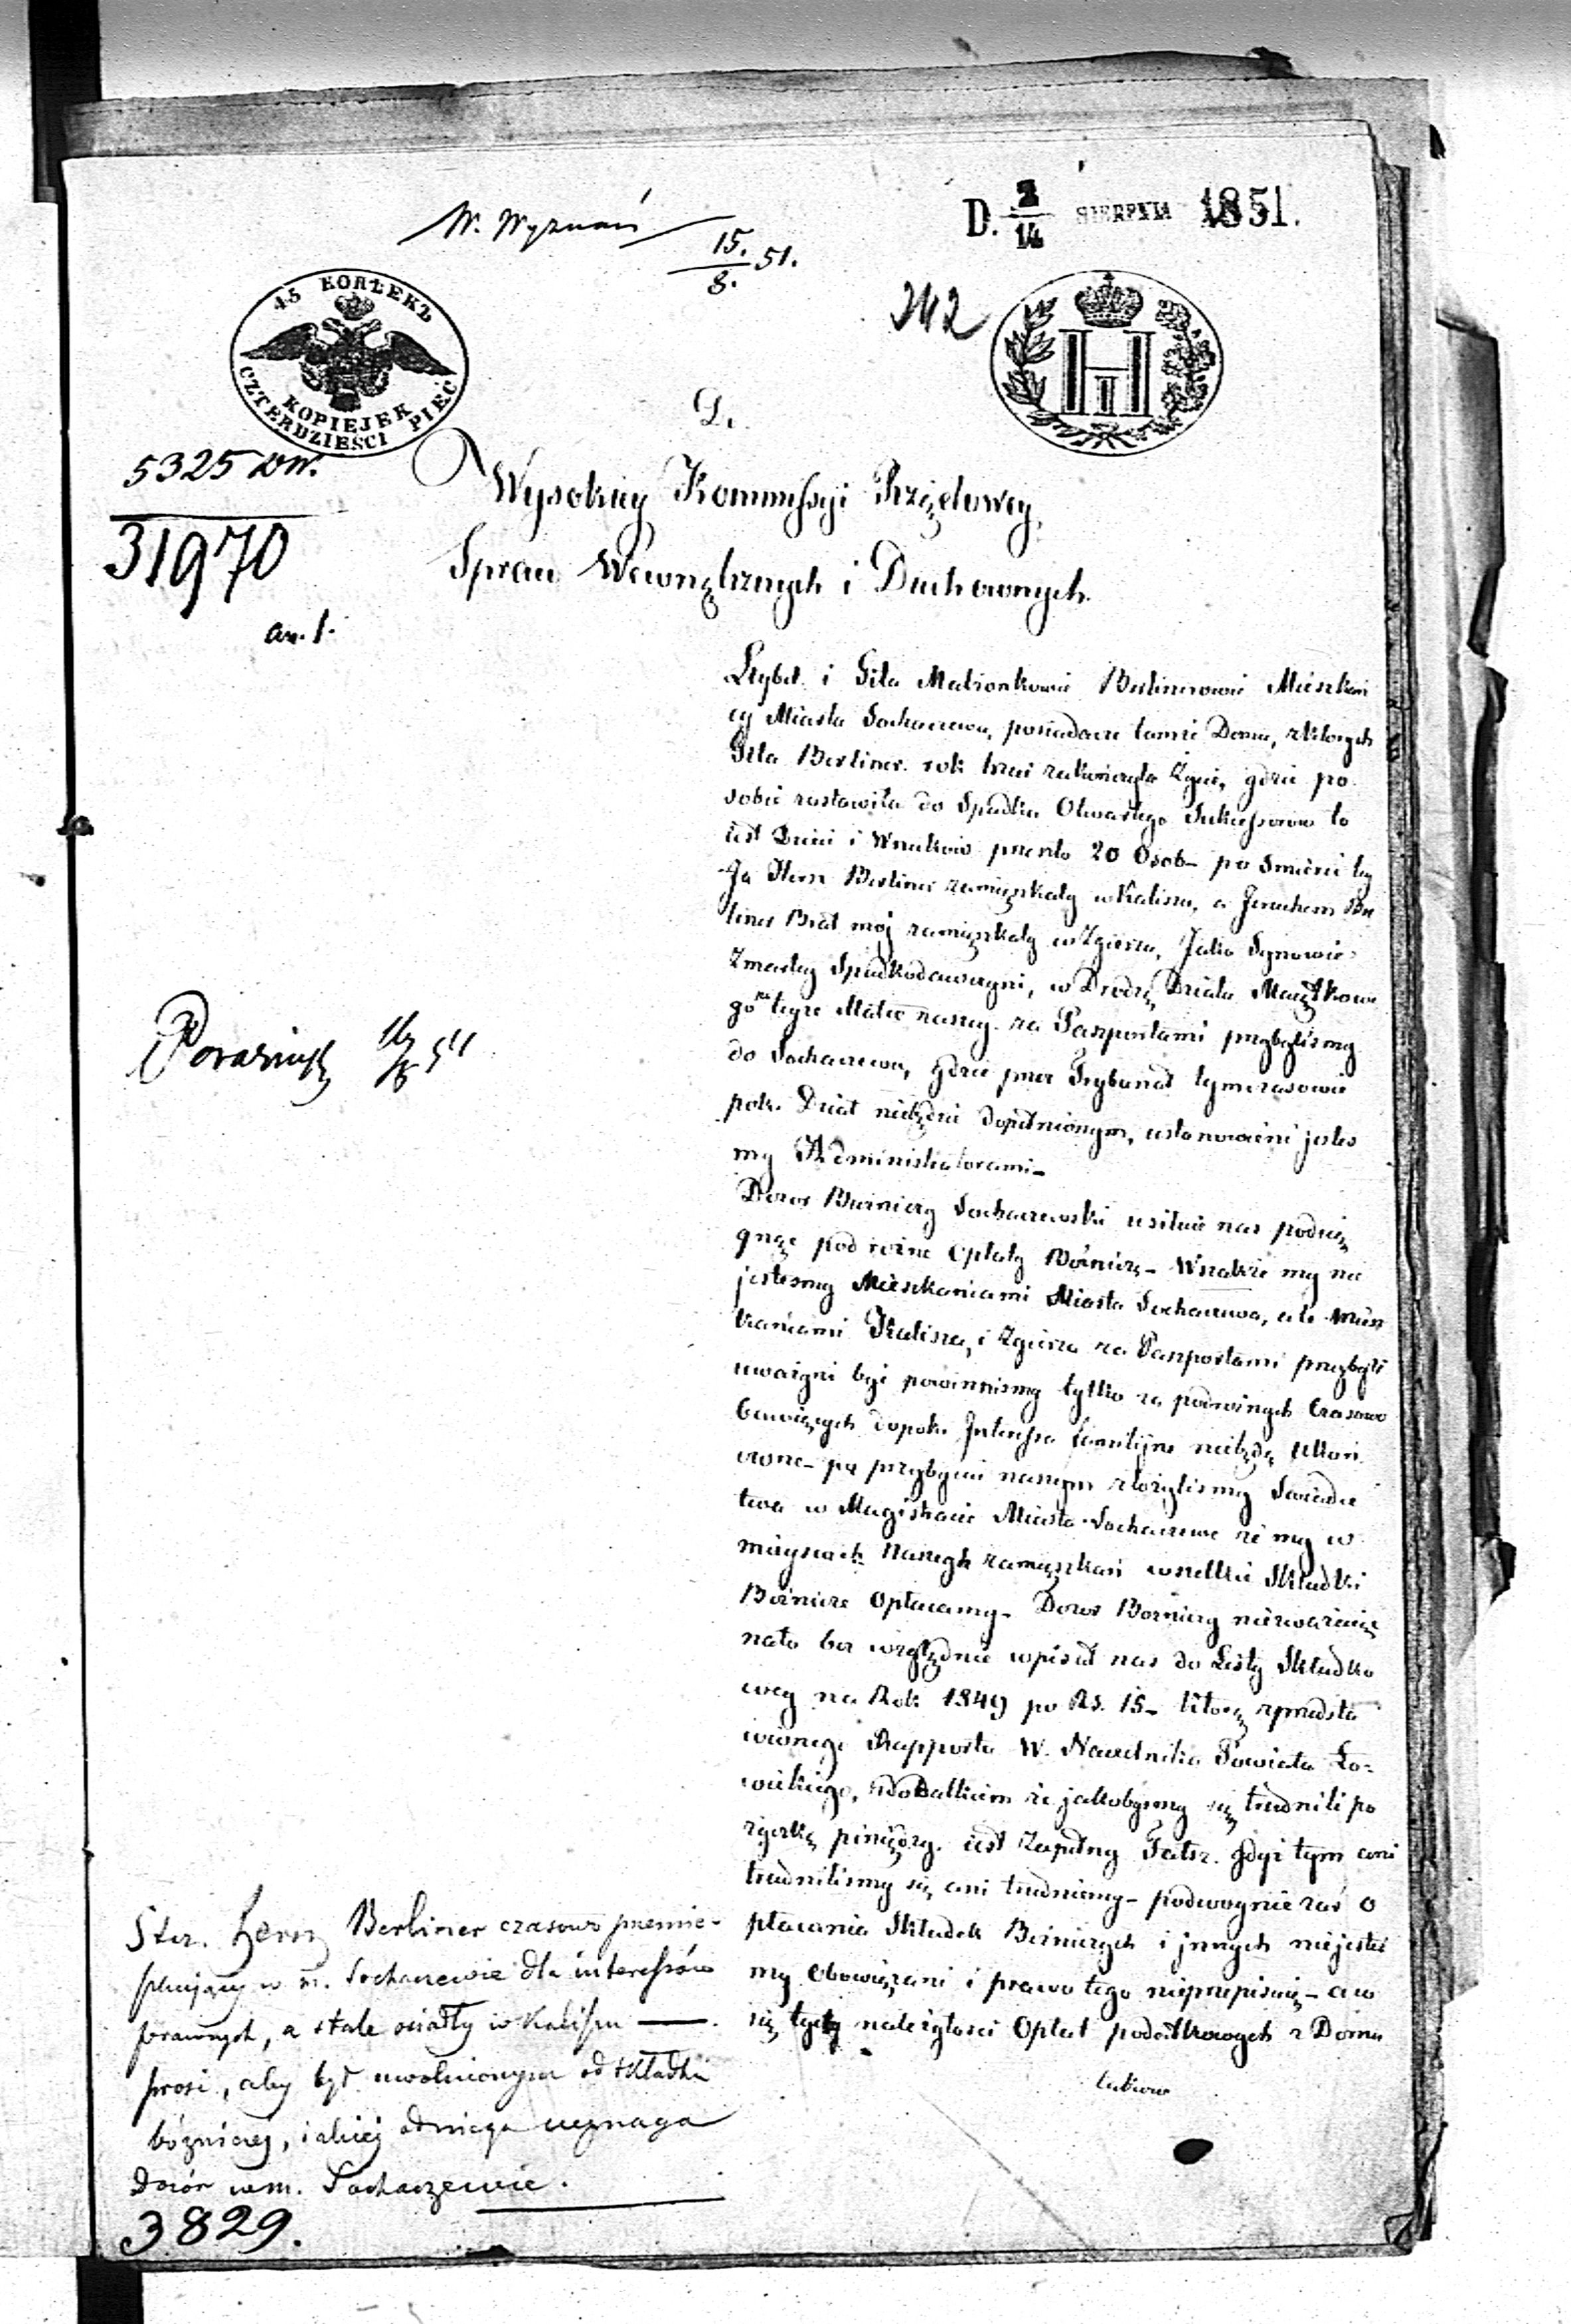 W. Wyznań
15./8. 51.
D. 2/14 SIERPNIA 1851.
242
45 КОПѢЕКЪ
KOPIEJEK
CZTERDZIEŚCI PIĘĆ
Н I
D.
5325 DW.
31970
an. 1.
Wysokiey Kommissyi Rządowey,
Spraw Wewnętrznych i Duchownych.
Leybel i Gitla Małżonkowie Berlinerowie Mieszkań
cy Miasta Sochaczewa, posiadacze tamże Domu, z których
Gitla Berliner rok trzeci zakończyła życie, gdzie po
sobie zostawiła do Spadku Otwartego Sukcessorów to
iest Dzieci i Wnuków przeszło 20 Osob – po śmierci tey
Ja Hersz Berliner zamięszkały w Kaliszu, a Jeruchem Ber
liner Brat mój zamięszkały w Zgierzu, Jako Synowie
Zmarłey Spadkodawczyni, w Drodze Działu Maiątkowe
go teyże Matce naszey za Paszportami przybyliśmy
do Sochaczewa, gdzie przez Trybunał tymczasowie
pok. Dział niebędzie dopełnionym, ustanowieni jesteś
my Administratorami –
Dozor Bużniczy Sochaczewski usiłuie nas podcią
gnąc pod rożne Opłaty Bóżnicze – Wszakże my nie
jesteśmy Mieszkańcami Miasta Sochaczewa, ale Miesz
kańcami Kalisza, i Zgierza za Paszportami przybyli
uważani być powinniśmy tylko za podróżnych Czasowo
bawiących dopoki Interessa familijne niebędą ukoń
czone – po przybyciu naszym złożyliśmy Swiadec
twa w Magistracie Miasta Sochaczewa że my w
mieyscach naszych zamięszkań wszelkie Składki
Bóżnicze Opłacamy – Dozor Bożniczy niezważaiąc
na to bez względnie wpisał nas do Listy Składko
wey na Rok 1849 po Rs. 15 – którą z przedsta
wionego Rapportu W. Naczelnika Powiatu Ło-
wickiego, z dodatkiem że jakobyśmy się trudnili po
życzką pieniędzy. iest Zupełny Fałsz. gdyż tym ani
trudniliśmy się ani trudniemy – podwoynie zaś o
płacania Składek Bożniczych i jnnych niejesteś
my obowiązani i prawo tego nieprzepisuie – a co
się tyczy należytości Opłat podatkowych z Domu
takowe
Poraziński 16/8 51
Ster. Hersz Berliner czasowo przemie-
szkujący w m. Sochaczewie dla interessów
prawnych, a stale osiadły w Kaliszu ——.
prosi, aby był uwolnionym od składki
bóźniczej, jakiej od niego wymaga
Dozór w m. Sochaczewie.
3829.